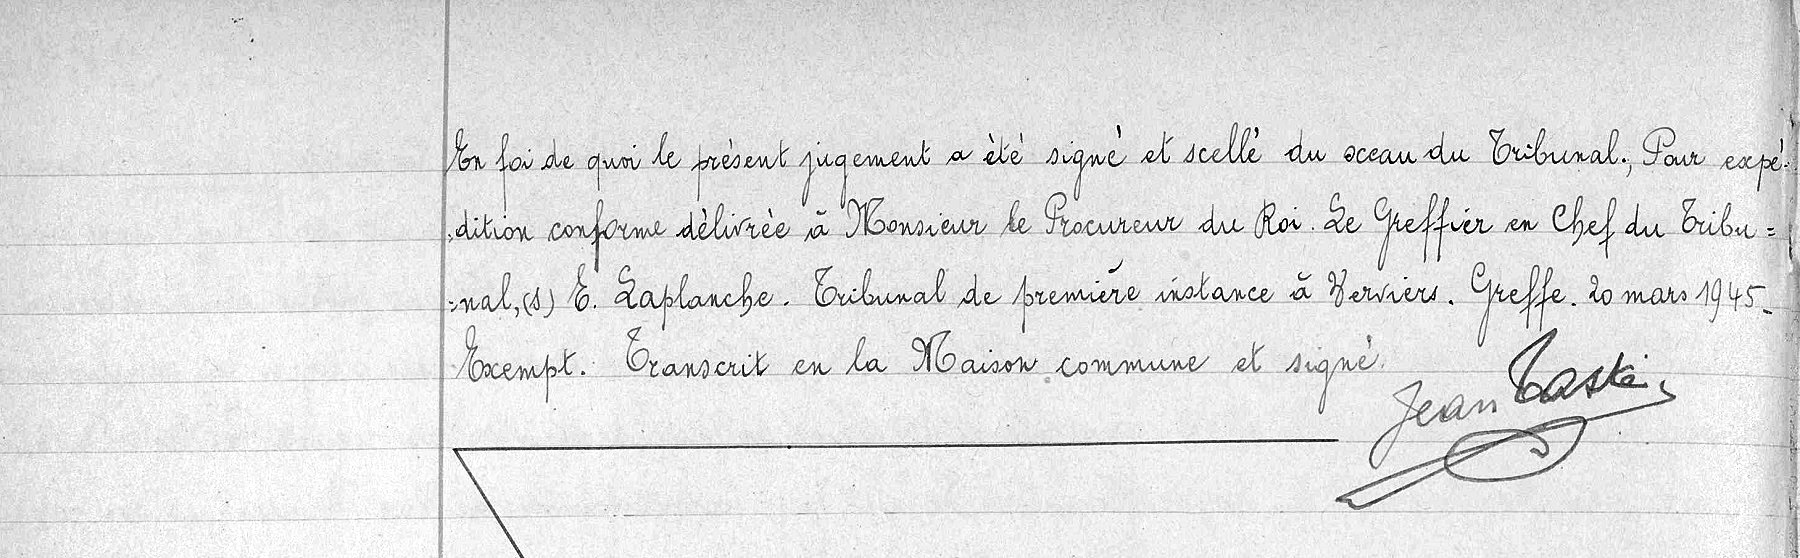 En foi de quoi le présent jugement a été signé et scellé du sceau du Tribunal., Pour expé-
-dition conforme délivrée à Monsieur le Procureur du Roi. Le Greffier en Chef du Tribu=
=nal, (s) E. Laplanche. Tribunal de première instance à Verviers. Greffe. 20 mars 1945_
Exempt. Transcrit en la Maison commune et signé.
Jean